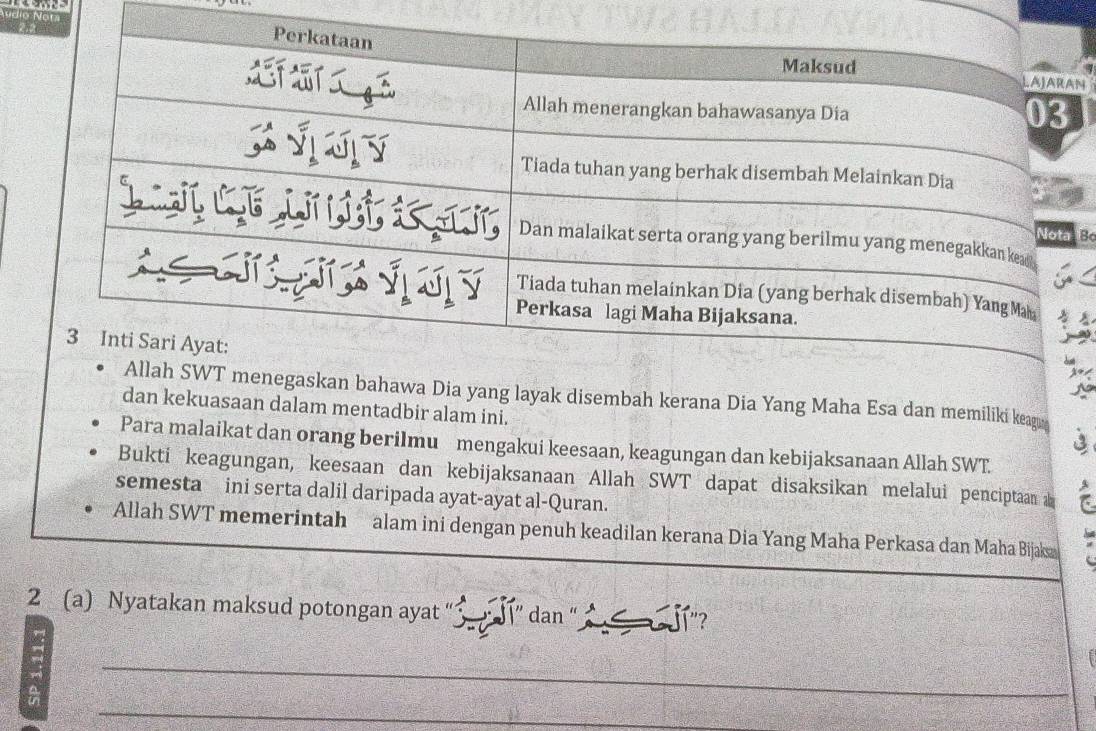 Audio Nota
2.2
Perkataan
Maksud
LAJARAN
03
شَهِدَ ٱللَّهُ أَنَّهُۥ
Allah menerangkan bahawasanya Dia
لَآ إِلَٰهَ إِلَّا هُوَ
Tiada tuhan yang berhak disembah Melainkan Dia
وَٱلْمَلَٰٓئِكَةُ وَأُو۟لُوا۟ ٱلْعِلْمِ قَآئِمًۢا بِٱلْقِسْطِ ۚ
Dan malaikat serta orang yang berilmu yang menegakkan
Nota
لَآ إِلَٰهَ إِلَّا هُوَ ٱلْعَزِيزُ ٱلْحَكِيمُ
Tiada tuhan melainkan Dia (yang berhak disembah) Yang Maha
Perkasa lagi Maha Bijaksana.
3 Inti Sari Ayat:
• Allah SWT menegaskan bahawa Dia yang layak disembah kerana Dia Yang Maha Esa dan memiliki
dan kekuasaan dalam mentadbir alam ini.
• Para malaikat dan orang berilmu mengakui keesaan, keagungan dan kebijaksanaan Allah SWT.
• Bukti keagungan, keesaan dan kebijaksanaan Allah SWT dapat disaksikan melalui penciptaan
semesta ini serta dalil daripada ayat-ayat al-Quran.
• Allah SWT memerintah alam ini dengan penuh keadilan kerana Dia Yang Maha Perkasa dan Maha
2 (a) Nyatakan maksud potongan ayat “ٱلْعَزِيزُ” dan “ٱلْحَكِيمُ”?
SP 1.11.1